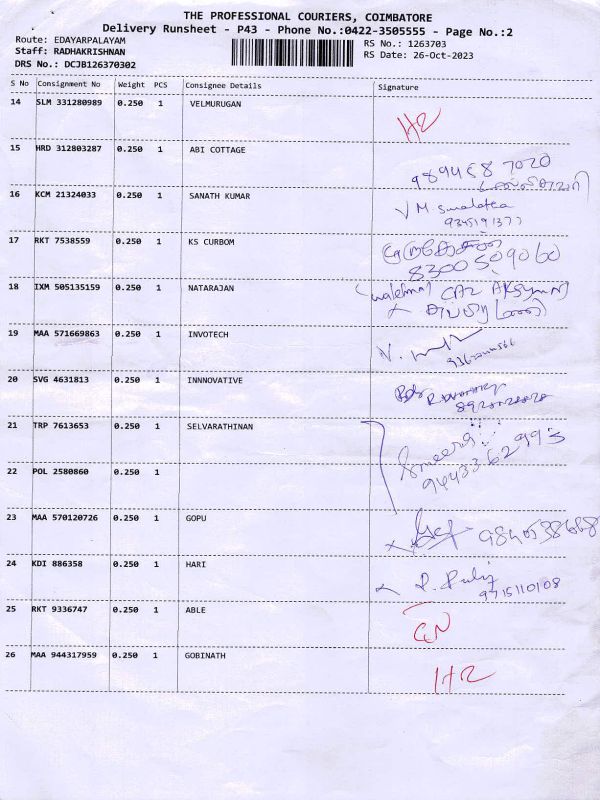 THE PROFESSIONAL COURIERS, COIMBATORE
Delivery Runsheet - P43 - Phone No.:0422-3505555 - Page No.:2
Route: EDAYARPALAYAM RS No.: 1263703
Staff: RADHAKRISHNAN RS Date: 26-Oct-2023
DRS No.: DCJB126370302
S No Consignment No Weight PCS Consignee Details Signature
14 SLM 331280989 0.250 1 VELMURUGAN
15 HRD 312803287 0.250 1 ABI COTTAGE
9894587020
16 KCM 21324033 0.250 1 SANATH KUMAR
9345191377
17 RKT 7538559 0.250 1 KS CURBOM
8300509060
18 IXM 505135159 0.250 1 NATARAJAN
19 MAA 571669863 0.250 1 INVOTECH
20 SVG 4631813 0.250 1 INNNOVATIVE
21 TRP 7613653 0.250 1 SELVARATHINAN
9443362993
22 POL 2580860 0.250 1
23 MAA 570120726 0.250 1 GOPU
9840538688
24 KDI 886358 0.250 1 HARI
9715110108
25 RKT 9336747 0.250 1 ABLE
26 MAA 944317959 0.250 1 GOBINATH